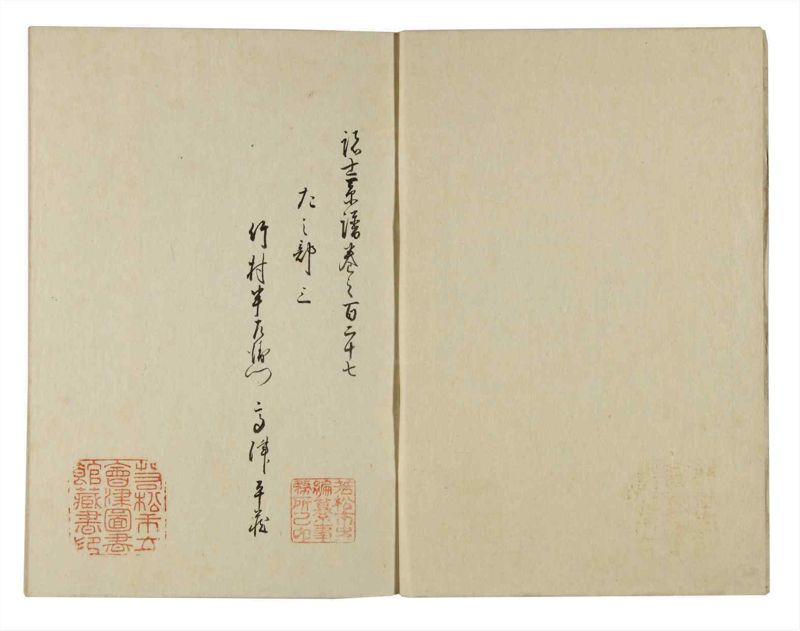 諸士系譜巻之百二十七
た之部三
竹村半左衛門 高津平蔵
若松市立
會津圖書
館藏書印
若松市史
編纂事
務所之印